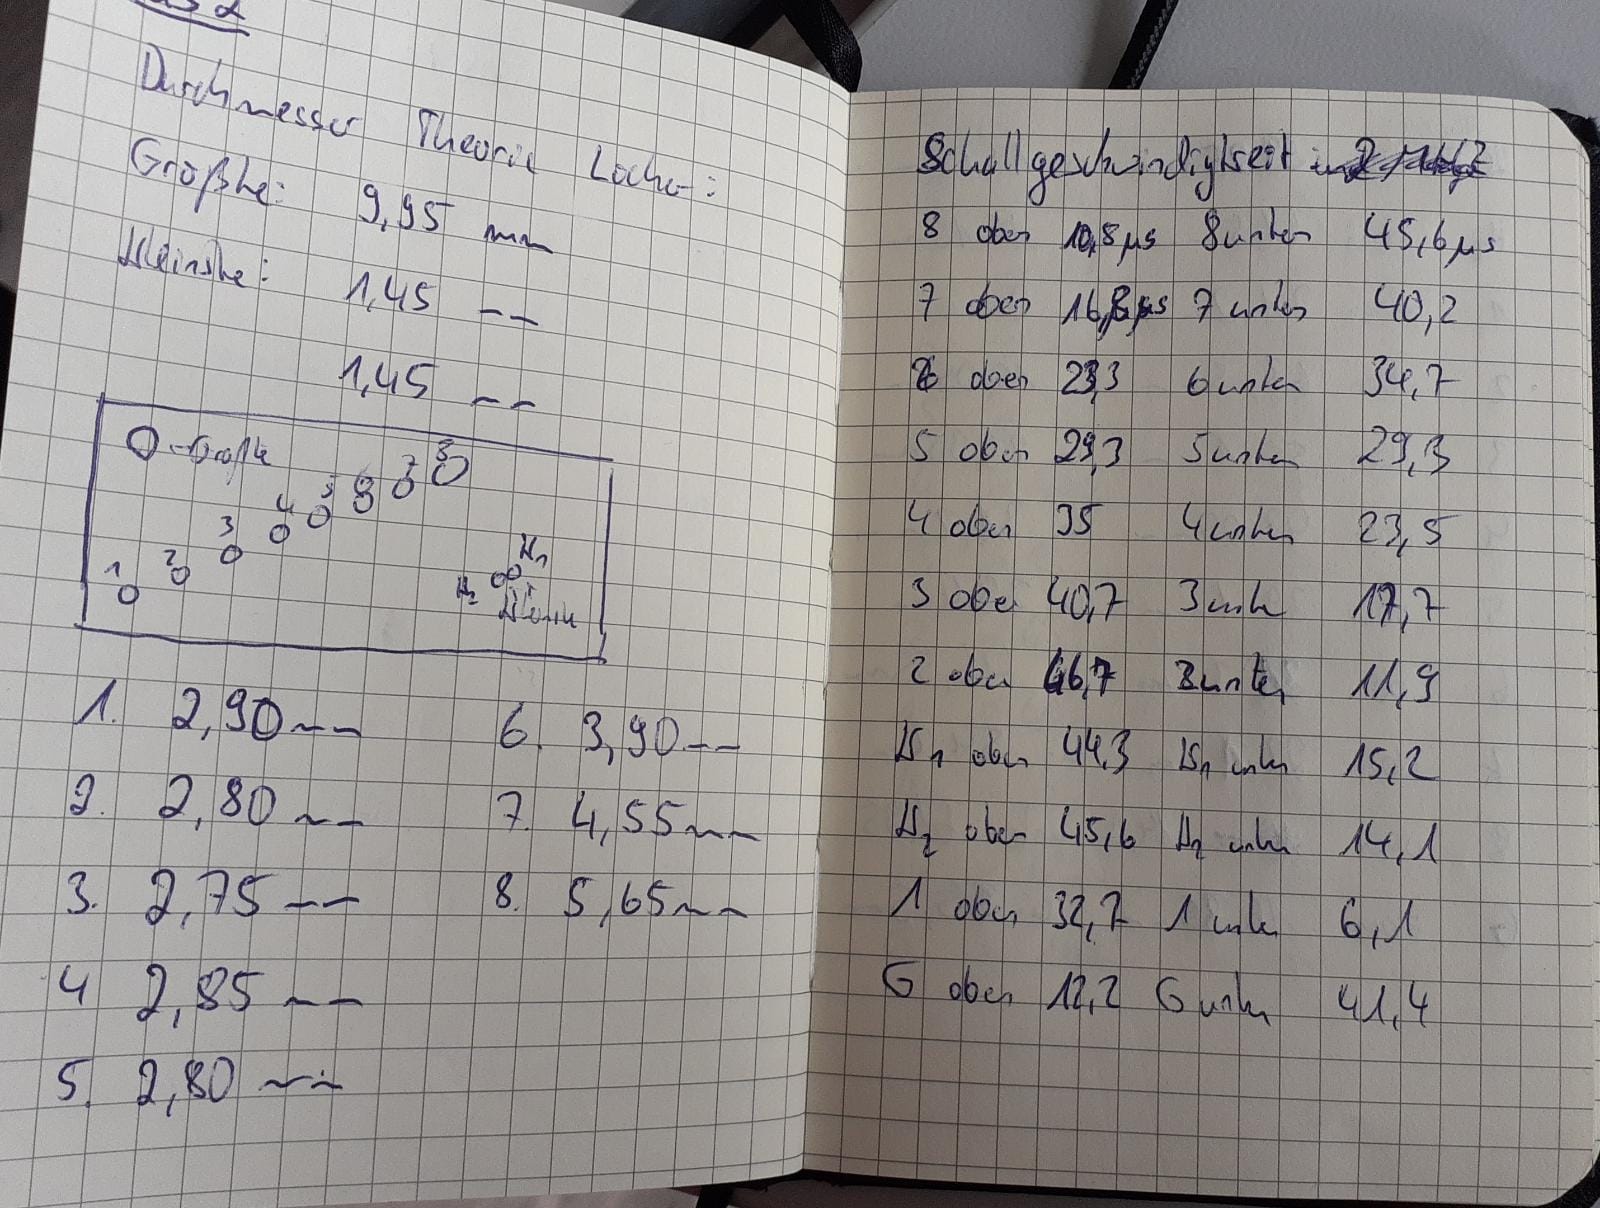 Durchmesser Theorie Löcher:
Größte: 9,95 mm
Kleinste: 1,45 mm
1,45 mm
O-Größte
1 2 3 4 5 6 7 8
K1
K2
Kleinste
1. 2,90 mm
2. 2,80 mm
3. 2,75 mm
4 2,85 mm
5. 2,80 mm
6. 3,90 mm
7. 4,55 mm
8. 5,65 mm
Schallgeschwindigkeit
8 oben 10,8 µs 8 unten 45,6 µs
7 oben 16,8 µs 7 unten 40,2
6 oben 23,3 6 unten 34,7
5 oben 29,3 5 unten 29,3
4 oben 35 4 unten 23,5
3 oben 40,7 3 unten 17,7
2 oben 46,7 unten 11,9
K1 oben 44,3 K1 unten 15,2
K2 oben 45,6 K2 unten 14,1
1 oben 32,7 1 unten 6,1
G oben 12,2 G unten 41,4